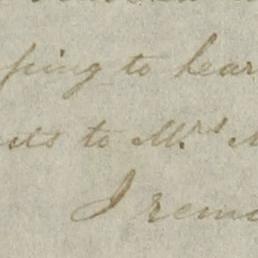 ping to hear
to Mrs
I rema